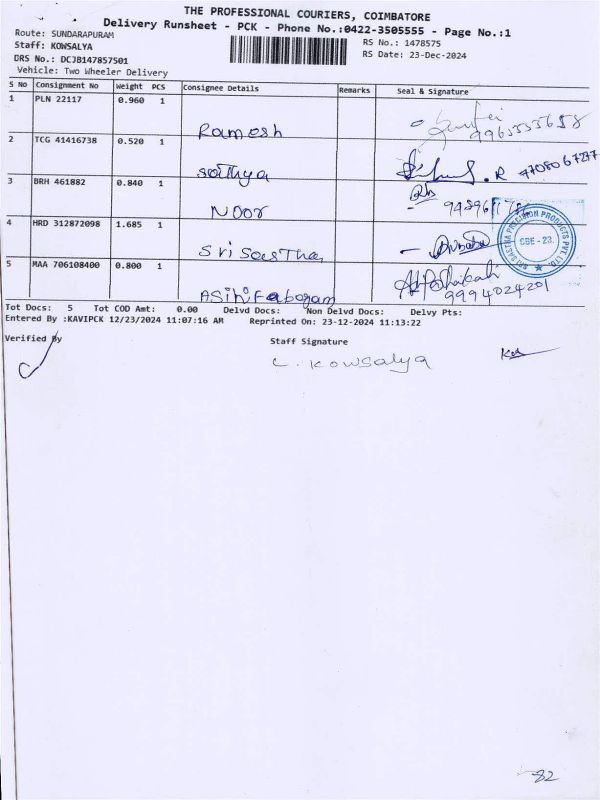 THE PROFESSIONAL COURIERS, COIMBATORE
Delivery Runsheet - PCK - Phone No.:0422-3505555 - Page No.:1
Route: SUNDARAPURAM
RS No.: 1478575
Staff: KOWSALYA
RS Date: 23-Dec-2024
DRS No.: DCJB147857501
Vehicle: Two Wheeler Delivery
S No Consignment No Weight PCS Consignee Details Remarks Seal & Signature
1 PLN 22117 0.960 1 Ramesh
2 TCG 41416738 0.520 1 Sathya
3 BRH 461882 0.840 1 Noor
4 HRD 312872098 1.685 1 Sri Sastha
SRI SASTHA PRECISION PRODUCTS PVT. LTD.
CBE - 23.
5 MAA 706108400 0.800 1 9994024201
Tot Docs: 5 Tot COD Amt: 0.00 Delvd Docs: Non Delvd Docs: Delvy Pts:
Entered By :KAVIPCK 12/23/2024 11:07:16 AM Reprinted On: 23-12-2024 11:13:22
Verified By
Staff Signature
C. Kowsalya
82